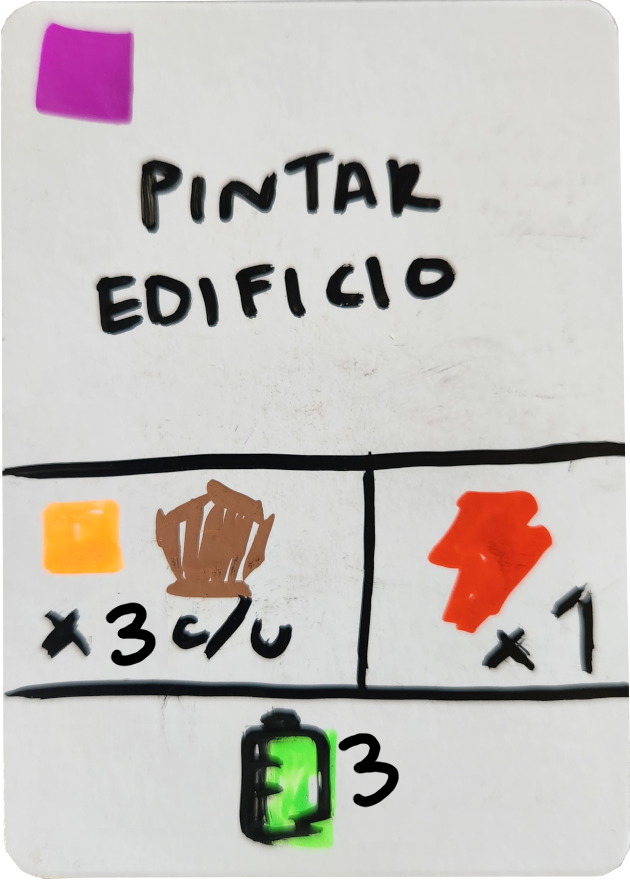 PINTAR
EDIFICIO
x 3 c/u
x 1
3